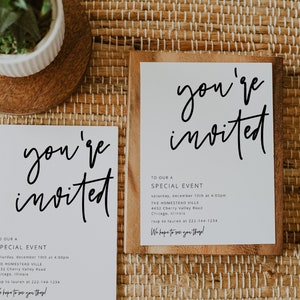 you're
invited
TO OUR A
SPECIAL EVENT
saturday, december 10th at 4:00pm
THE HOMESTEAD VILLE
4432 Cherry Valley Road
Chicago, Illinois
rsvp to lauren at 222-144-1234
We hope to see you there!
you're
invited
TO OUR A
SPECIAL EVENT
saturday, december 10th at 4:00pm
THE HOMESTEAD VILLE
4432 Cherry Valley Road
Chicago, Illinois
rsvp to lauren at 222-144-1234
We hope to see you there!